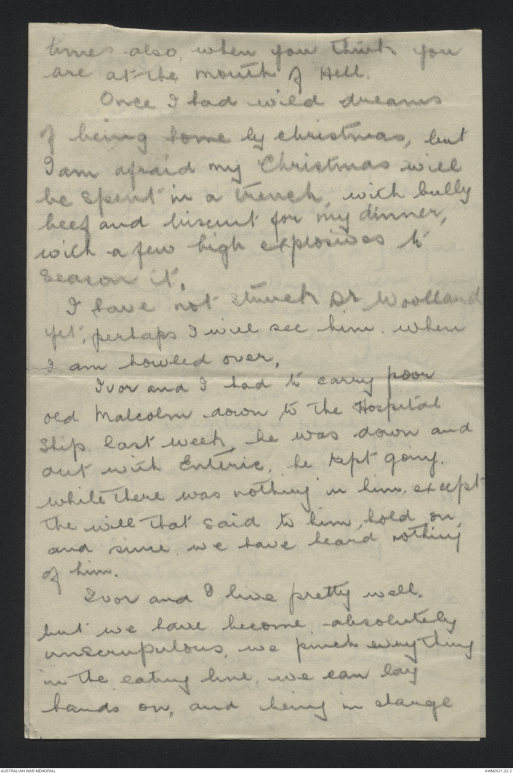 times also, when you think you
are at the mouth of Hell.
Once I had wild dreams
of being home by christmas, but
I am afraid my Christmas will
be spent in a trench, with bully
beef and biscuit for my dinner,
with a few high explosives to
season it.
I have not struck Dr Woolland
yet, perhaps I will see him when
I am bowled over.
Ivor and I had to carry poor
old Malcolm down to the Hospital
Ship last week, he was down and
out with Enteric, he kept going
while there was nothing in him, except
the will that said to him, hold on,
and since, we have heard nothing
of him.
Ivor and I live pretty well.
but we have become absolutely
unscrupulous, we pinch everything
in the eating line, we can lay
hands on, and being in charge
AUSTRALIAN WAR MEMORIAL